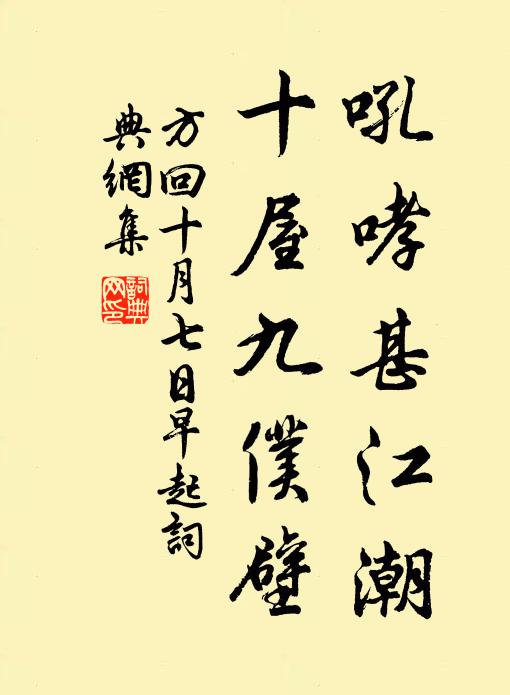 吼哮甚江潮
十屋九僕壁
方回十月七日早起詞
典網集
詞典
网印